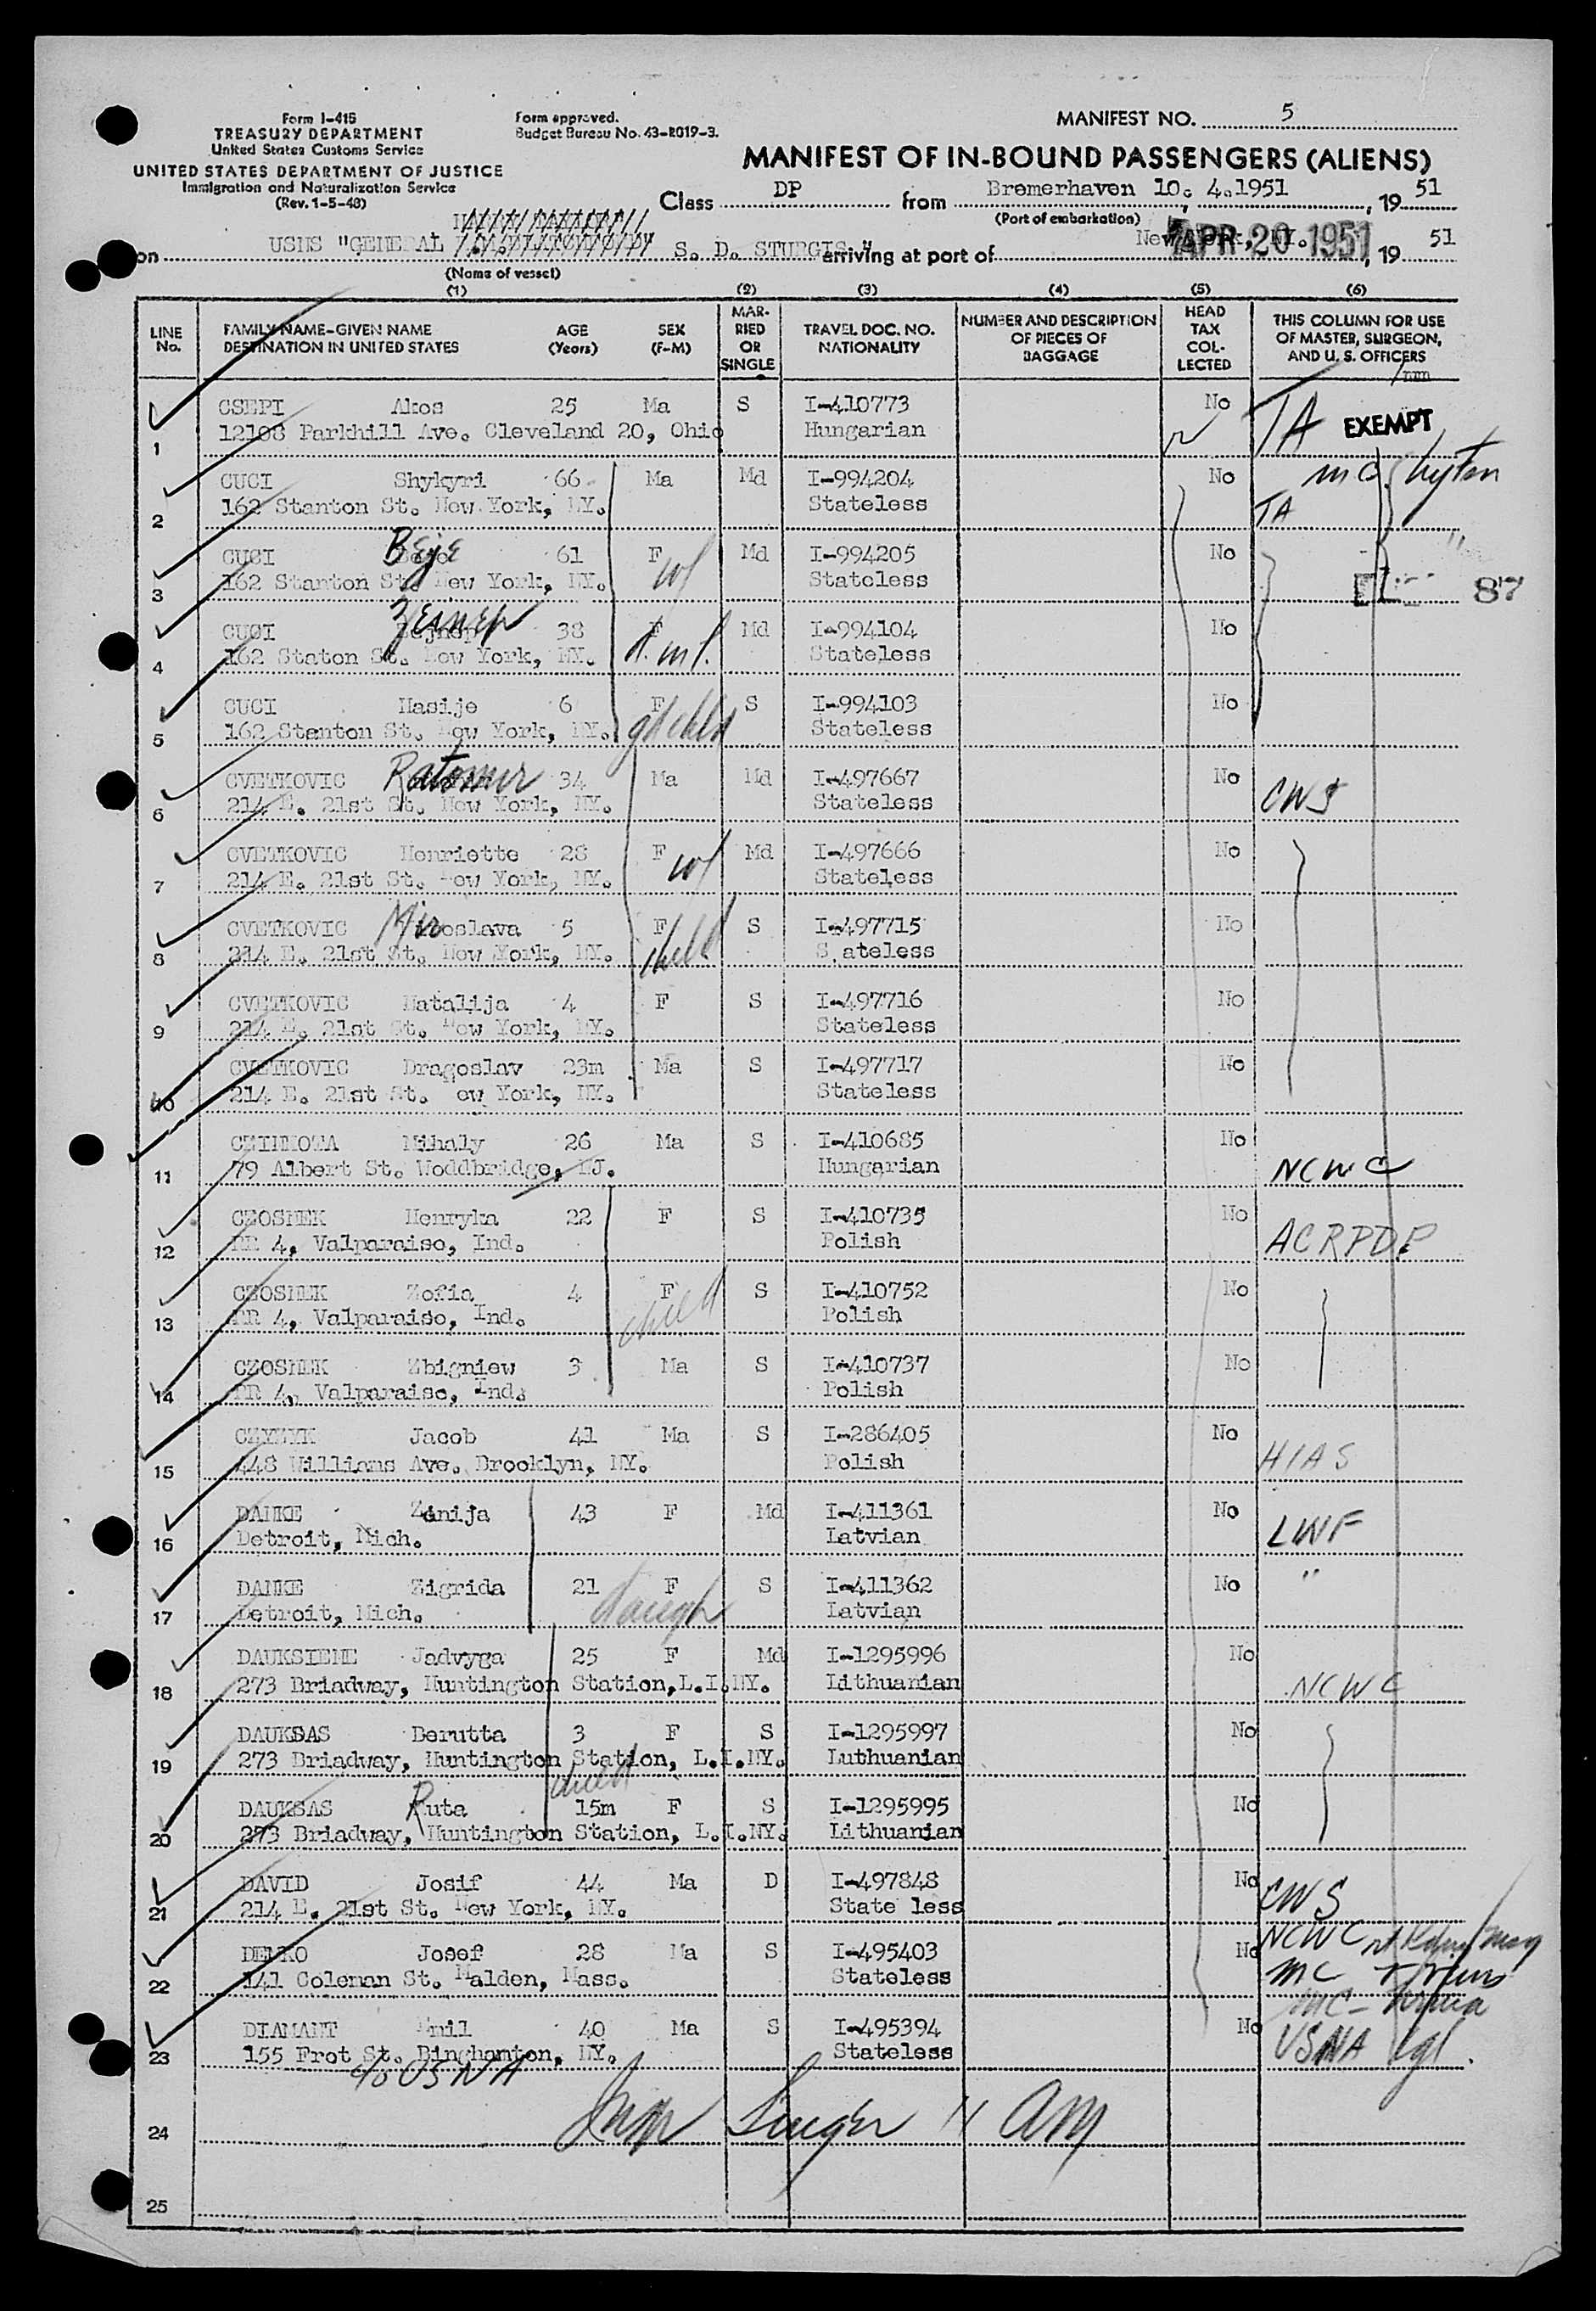 Form I-415
TREASURY DEPARTMENT
United States Customs Service
UNITED STATES DEPARTMENT OF JUSTICE
Immigration and Naturalization Service
(Rev. 1-5-48)
Form approved.
Budget Bureau No. 43-R019-3.
MANIFEST NO. 5
MANIFEST OF IN-BOUND PASSENGERS (ALIENS)
Class DP from Bremerhaven 10. 4.1951, 19 51
(Port of embarkation)
on USNS "GENERAL S. D. STURGIS" arriving at port of New York, NY. APR 20 1951, 19 51
(Name of vessel)
(1) (2) (3) (4) (5) (6)
LINE No. FAMILY NAME-GIVEN NAME DESTINATION IN UNITED STATES AGE (Years) SEX (F-M) MARRIED OR SINGLE TRAVEL DOC. NO. NATIONALITY NUMBER AND DESCRIPTION OF PIECES OF BAGGAGE HEAD TAX COLLECTED THIS COLUMN FOR USE OF MASTER, SURGEON, AND U. S. OFFICERS
CSEPI Akos 25 Ma S I-410773 No TA EXEMPT
1 12108 Parkhill Ave. Cleveland 20, Ohio Hungarian
CUCI Shykyri 66 Ma Md I-994204 No
2 162 Stanton St. New York, NY. Stateless TA
CUCI Beje 61 F wf Md I-994205 No
3 162 Stanton St. New York, NY. Stateless 87
CUCI Zejnep 38 F Md I-994104 No
4 162 Staton St. New York, NY. Stateless
CUCI Hasije 6 F S I-994103 No
5 162 Stanton St. New York, NY. gdchild Stateless
CVETKOVIC Ratomir 34 Ma Md I-497667 No
6 214 E. 21st St. New York, NY. Stateless CWS
CVETKOVIC Henriette 28 F wf Md I-497666 No
7 214 E. 21st St. New York, NY. Stateless
CVETKOVIC Miroslava 5 F S I-497715 No
8 214 E. 21st St. New York, NY. child S ateless
CVETKOVIC Natalija 4 F S I-497716 No
9 214 E. 21st St. New York, NY. Stateless
CVETKOVIC Dragoslav 23m Ma S I-497717 No
10 214 E. 21st St. ew York, NY. Stateless
Mihaly 26 Ma S I-410685 No
11 79 Albert St. Woddbridge, NJ. Hungarian NCWC
CZOSNEK Henryka 22 F S I-410735 No
12 RR 4, Valparaiso, Ind. Polish ACRPDP
CZOSNEK Zofia 4 F S I-410752 No
13 RR 4, Valparaiso, Ind. child Polish
CZOSNEK Zbigniew 3 Ma S I-410737 No
14 RR 4, Valparaiso, Ind. Polish
CZYZYK Jacob 41 Ma S I-286405 No
15 448 Williams Ave. Brooklyn, NY. Polish HIAS
DANKE Zenija 43 F Md I-411361 No
16 Detroit, Mich. Latvian LWF
DANKE Zigrida 21 F S I-411362 No "
17 Detroit, Mich. daugh Latvian
DAUKSIENE Jadvyga 25 F Md I-1295996 No
18 273 Briadway, Huntington Station,L.I.NY. Lithuanian NCWC
DAUKSAS Berutta 3 F S I-1295997 No
19 273 Briadway, Huntington Station, L.I.NY. Luthuanian
child
DAUKSAS Ruta 15m F S I-1295995 No
20 273 Briadway, Huntington Station, L.I.NY. Lithuanian
DAVID Josif 44 Ma D I-497848 No
21 214 E. 21st St. New York, NY. State less CWS
DEMKO Josef 28 Ma S I-495403 No NCWC
22 141 Coleman St. Malden, Mass. Stateless MC
DIAMANT Emil 40 Ma S I-495394 No
23 155 Frot St. Binghamton, NY. Stateless USNA
c/o USNA
24
25